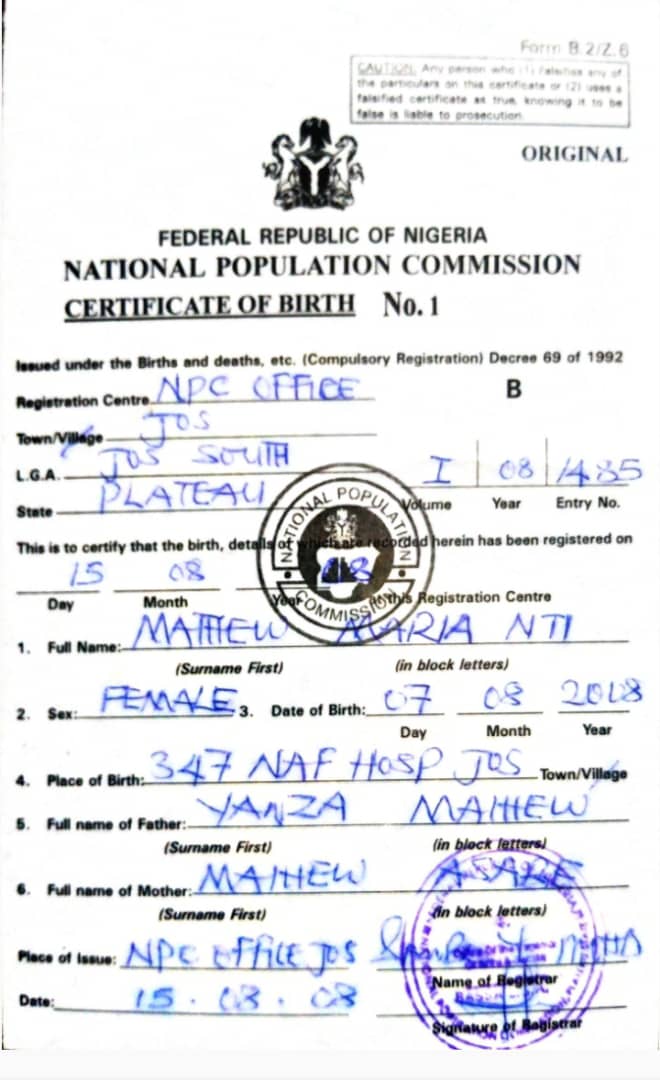 Form B.2/Z.6
CAUTION: Any person who (1) falsifies any of
the particulars on this certificate or (2) uses a
falsified certificate as true, knowing it to be
false is liable to prosecution.
ORIGINAL
FEDERAL REPUBLIC OF NIGERIA
NATIONAL POPULATION COMMISSION
CERTIFICATE OF BIRTH No. 1
Issued under the Births and deaths, etc. (Compulsory Registration) Decree 69 of 1992
Registration Centre NPC OFFICE B
Town/Village JOS
L.G.A. JOS SOUTH
I 08 1485
State PLATEAU
Volume Year Entry No.
NATIONAL POPULATION COMMISSION
This is to certify that the birth, details of which are recorded herein has been registered on
15 08 08
Day Month Year at this Registration Centre
1. Full Name: MATHEW MARIA NTI
(Surname First) (in block letters)
2. Sex: FEMALE 3. Date of Birth: 07 08 2008
Day Month Year
4. Place of Birth: 347 NAF HOSP JOS Town/Village
5. Full name of Father: YANZA MATHEW
(Surname First) (in block letters)
6. Full name of Mother: MATHEW
(Surname First) (in block letters)
Place of Issue: NPC OFFICE JOS
Name of Registrar
Date: 15.08.08
Signature of Registrar